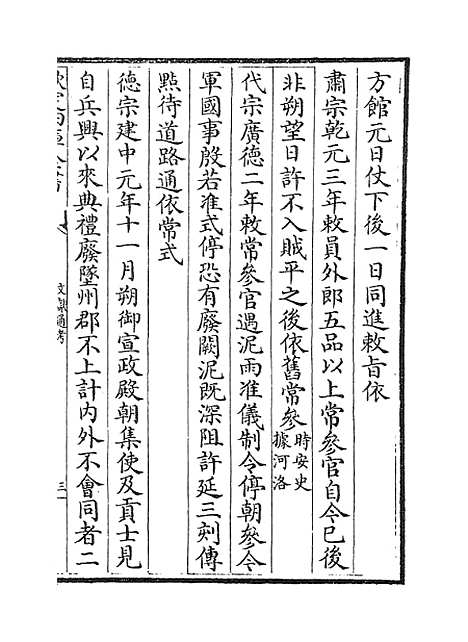 方館元日仗下後一日同進敕旨依
肅宗乾元三年敕員外郎五品以上常參官自今已後
非朔望日許不入賊平之後依舊常參時安史據河洛
代宗廣德二年敕常參官遇泥雨准儀制令停朝參今
軍國事殷若准式停恐有廢闕泥既深阻許延三刻傳
點待道路通依常式
德宗建中元年十一月朔御宣政殿朝集使及貢士見
自兵興以來典禮廢墜州郡不上計內外不會同者二
文獻通考